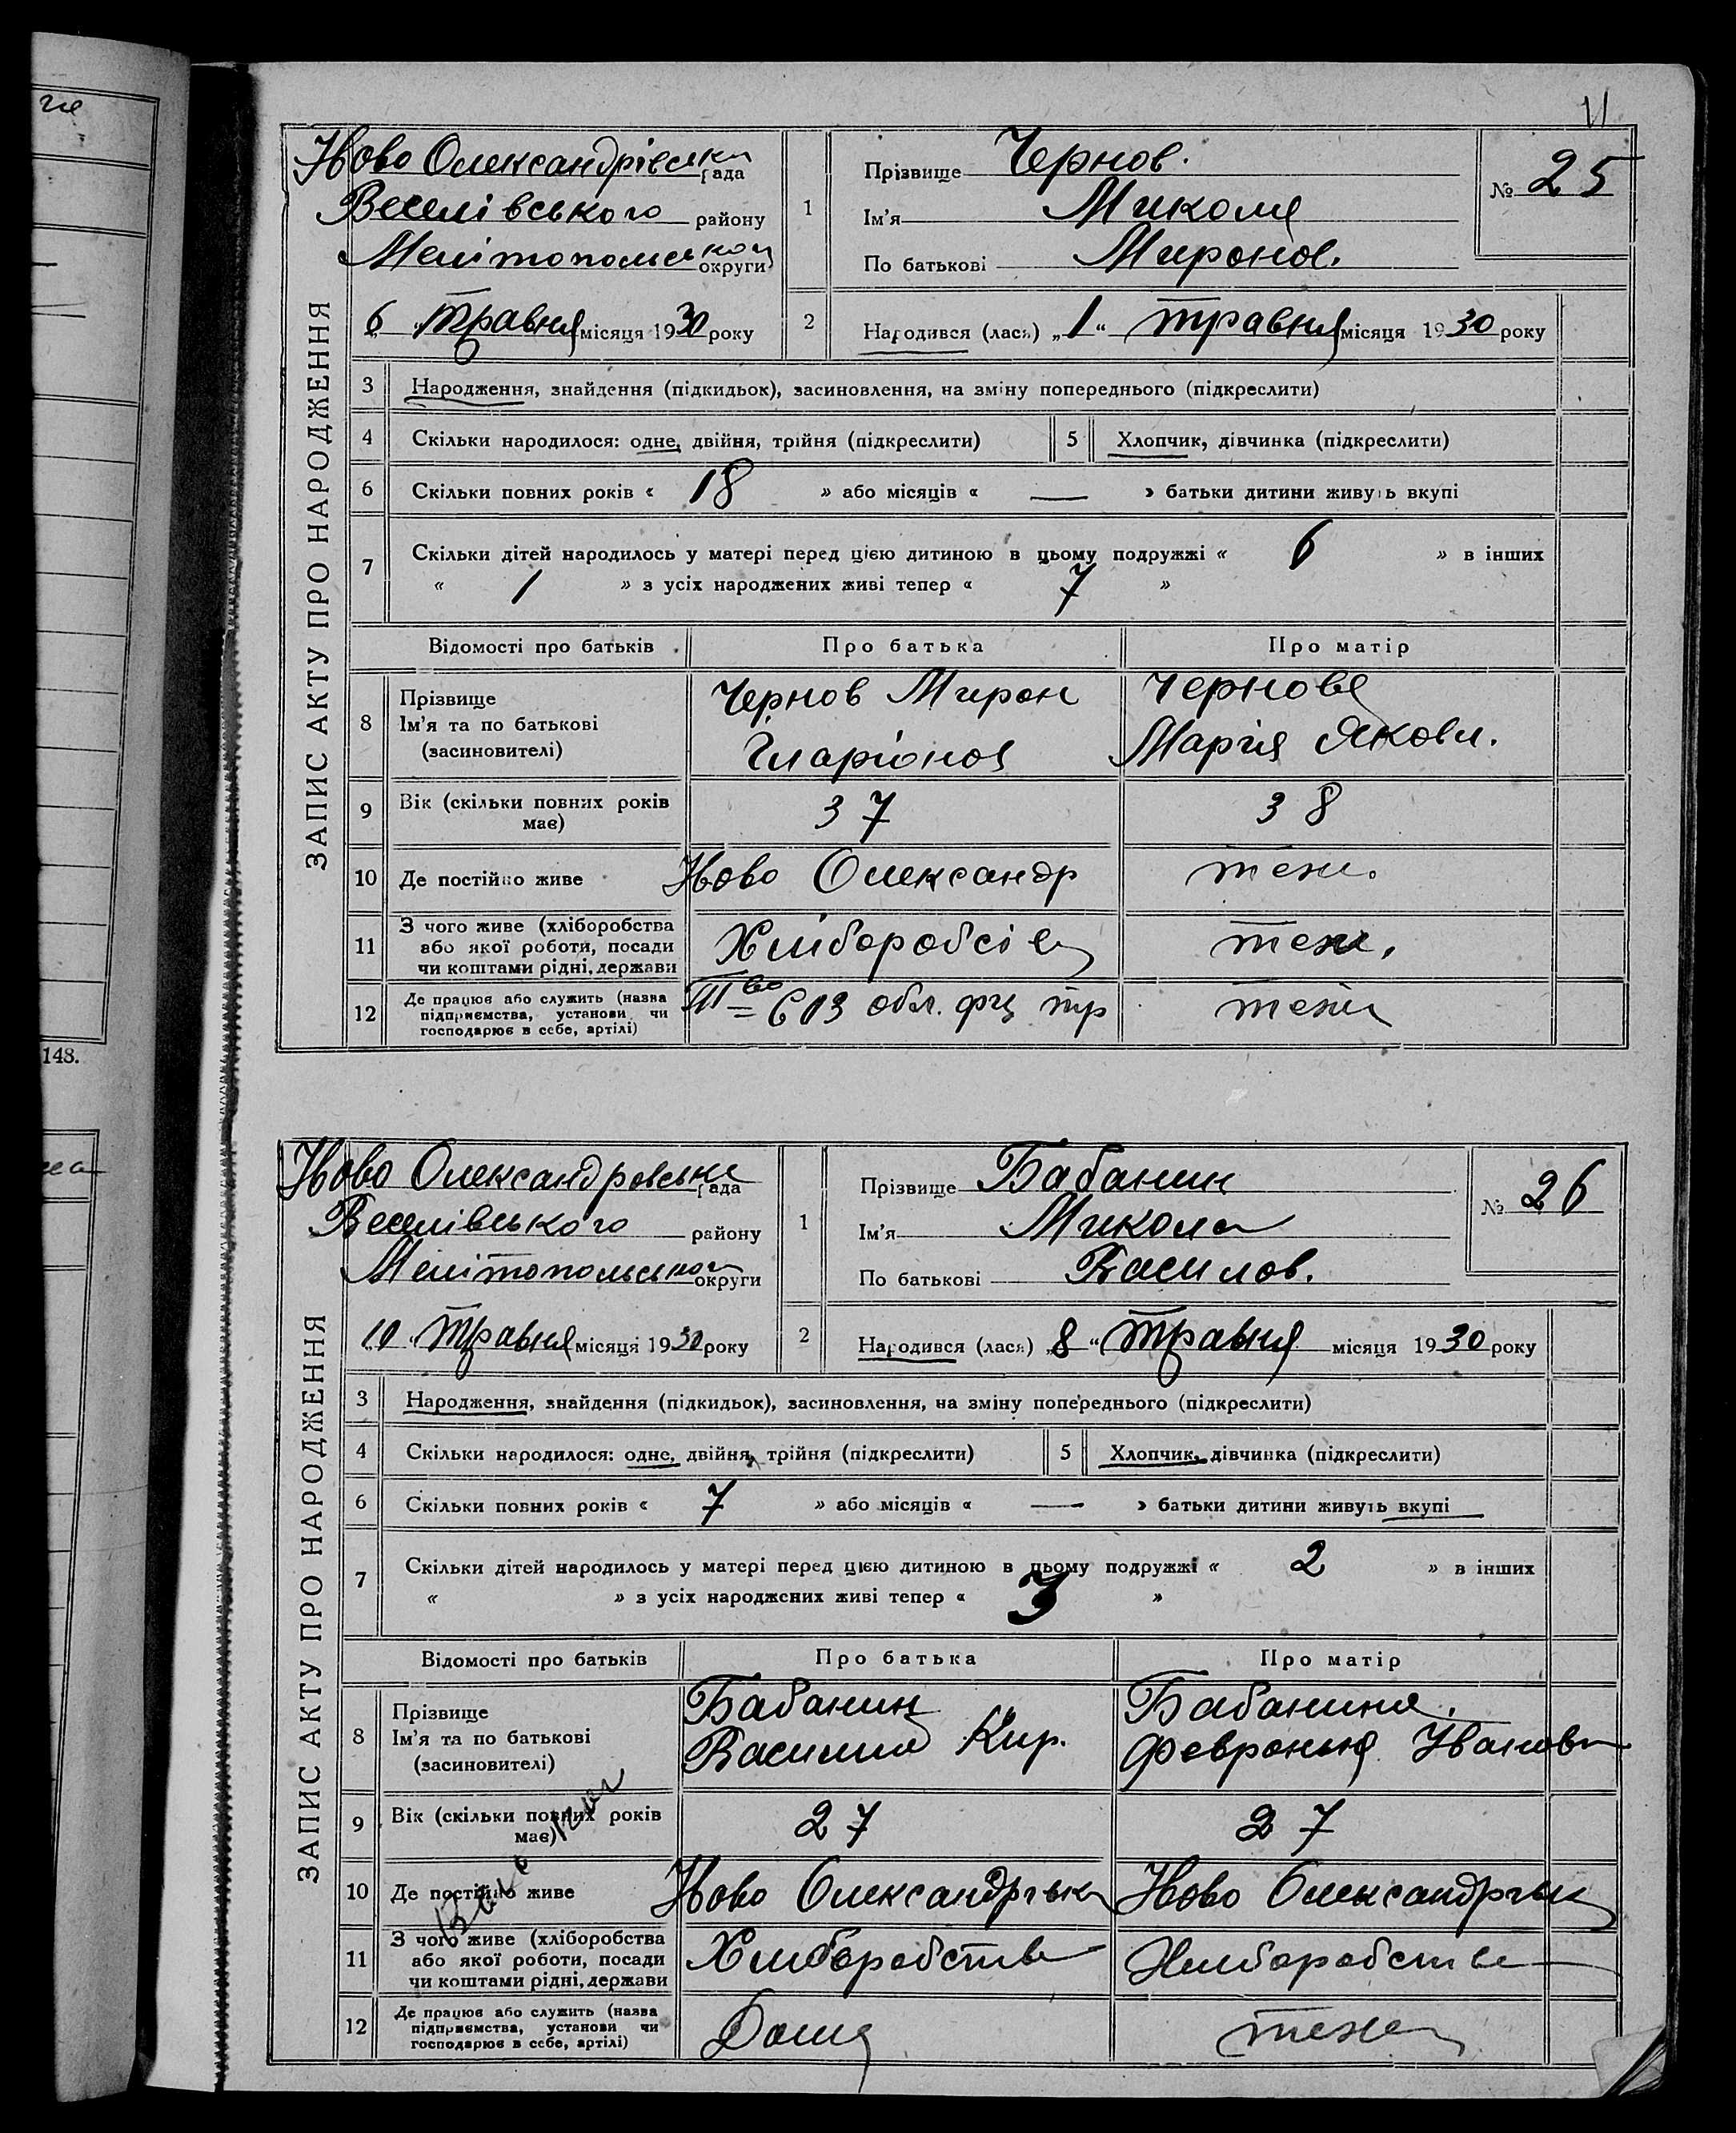 че
148.
на
VI
Ново Олександрівська рада
Веселівського району
Мелітопольської округи
6 травня місяця 1930 року
1
Прізвище Чернов.
Ім'я Микола
По батькові Миронов.
№ 25
2
Народився (лася) „1“ травня місяця 1930 року
ЗАПИС АКТУ ПРО НАРОДЖЕННЯ
3 Народження, знайдення (підкидьок), засиновлення, на зміну попереднього (підкреслити)
4 Скільки народилося: одне, двійня, трійня (підкреслити) 5 Хлопчик, дівчинка (підкреслити)
6 Скільки повних років « 18 » або місяців « — » батьки дитини живуть вкупі
7 Скільки дітей народилось у матері перед цією дитиною в цьому подружжі « 6 » в інших
« 1 » з усіх народжених живі тепер « 7 »
Відомості про батьків Про батька Про матір
8 Прізвище
Ім'я та по батькові
(засиновителі)
Чернов Мирон
Іларіонов
Чернова
Марія Яковл.
9 Вік (скільки повних років
має)
37 38
10 Де постійно живе Ново Олександр теж.
11 З чого живе (хліборобства
або якої роботи, посади
чи коштами рідні, держави
Хлібороб теж.
12 Де працює або служить (назва
підприємства, установи чи
господарює в себе, артілі)
обл. тр теж
Ново Олександровська рада
Веселівського району
Мелітопольської округи
10 травня місяця 1930 року
1
Прізвище Бабанин
Ім'я Микола
По батькові Василов.
№ 26
2
Народився (лася) „8“ травня місяця 1930 року
ЗАПИС АКТУ ПРО НАРОДЖЕННЯ
3 Народження, знайдення (підкидьок), засиновлення, на зміну попереднього (підкреслити)
4 Скільки народилося: одне, двійня, трійня (підкреслити) 5 Хлопчик, дівчинка (підкреслити)
6 Скільки повних років « 7 » або місяців « — » батьки дитини живуть вкупі
7 Скільки дітей народилось у матері перед цією дитиною в цьому подружжі « 2 » в інших
« » з усіх народжених живі тепер « 3 »
Відомості про батьків Про батька Про матір
8 Прізвище
Ім'я та по батькові
(засиновителі)
Бабанин
Василий Кир.
Бабанина.
Февронья Иванов
9 Вік (скільки повних років
має)
27 27
10 Де постійно живе Ново Олександрівка Ново Олександрівка
11 З чого живе (хліборобства
або якої роботи, посади
чи коштами рідні, держави
Хліборобства Хліборобства
12 Де працює або служить (назва
підприємства, установи чи
господарює в себе, артілі)
Дома теж